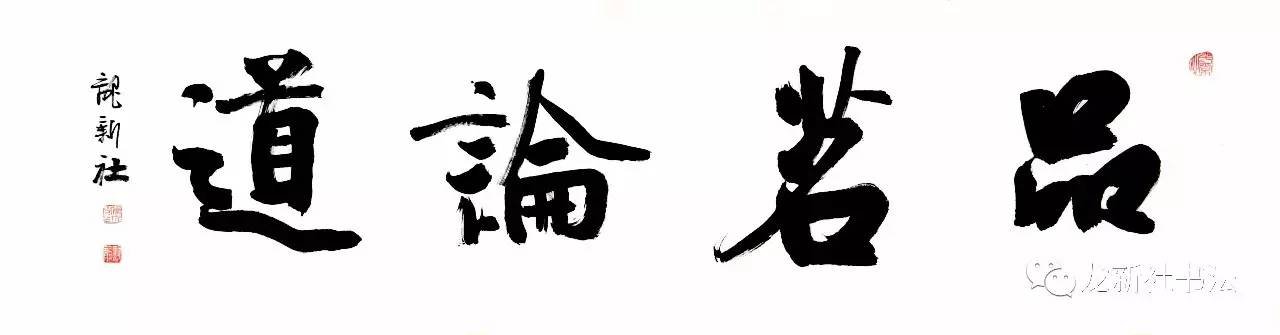 品茗論道
龍新社
龙新社书法